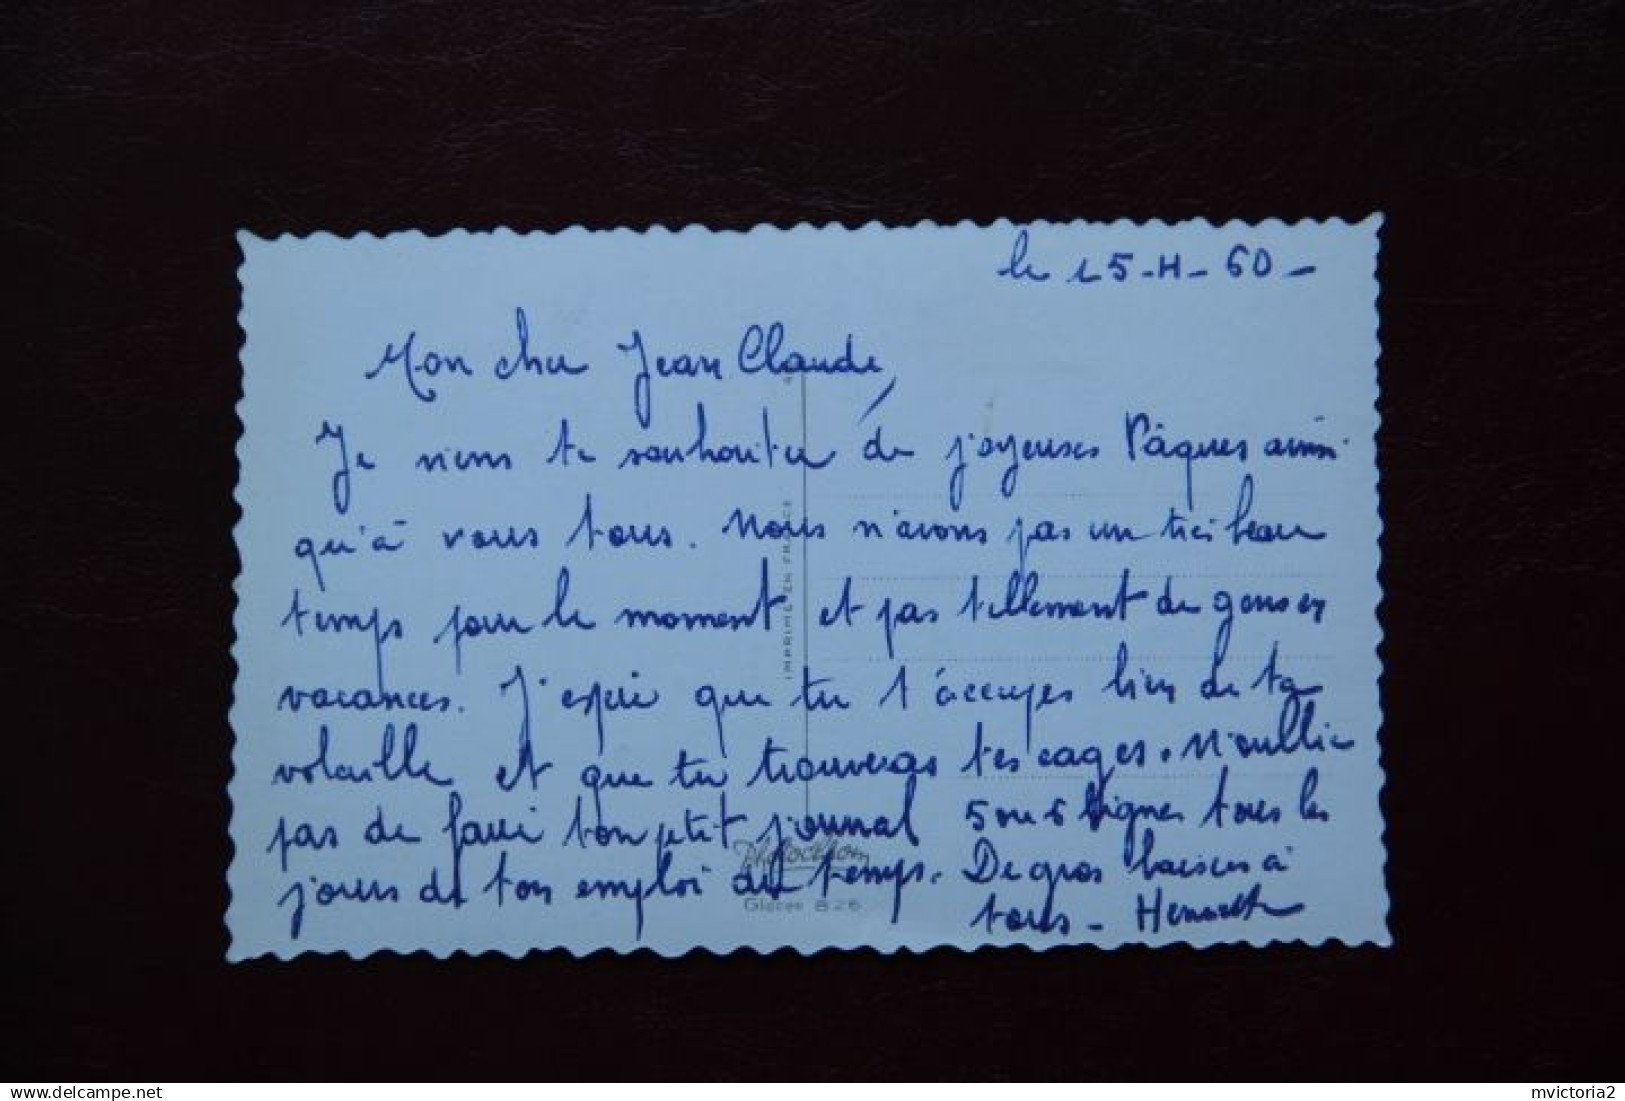 le 15-4-60-
Mon cher Jean Claude,
Je viens te souhaiter de joyeuses Pâques ainsi
qu'à vous tous. Nous n'avons pas un très beau
temps pour le moment et pas tellement de gens en
vacances. J'espère que tu t'occupes bien de ta
volaille et que tu trouveras tes cages. N'oublie
pas de faire ton petit journal 5 ou 6 lignes tous les
jours de ton emploi du temps. De gros baisers à
tous-
IMPRIMÉ EN FRANCE
Photochrom
Glacée 826
https://www.delcampe.net
mvictoria2